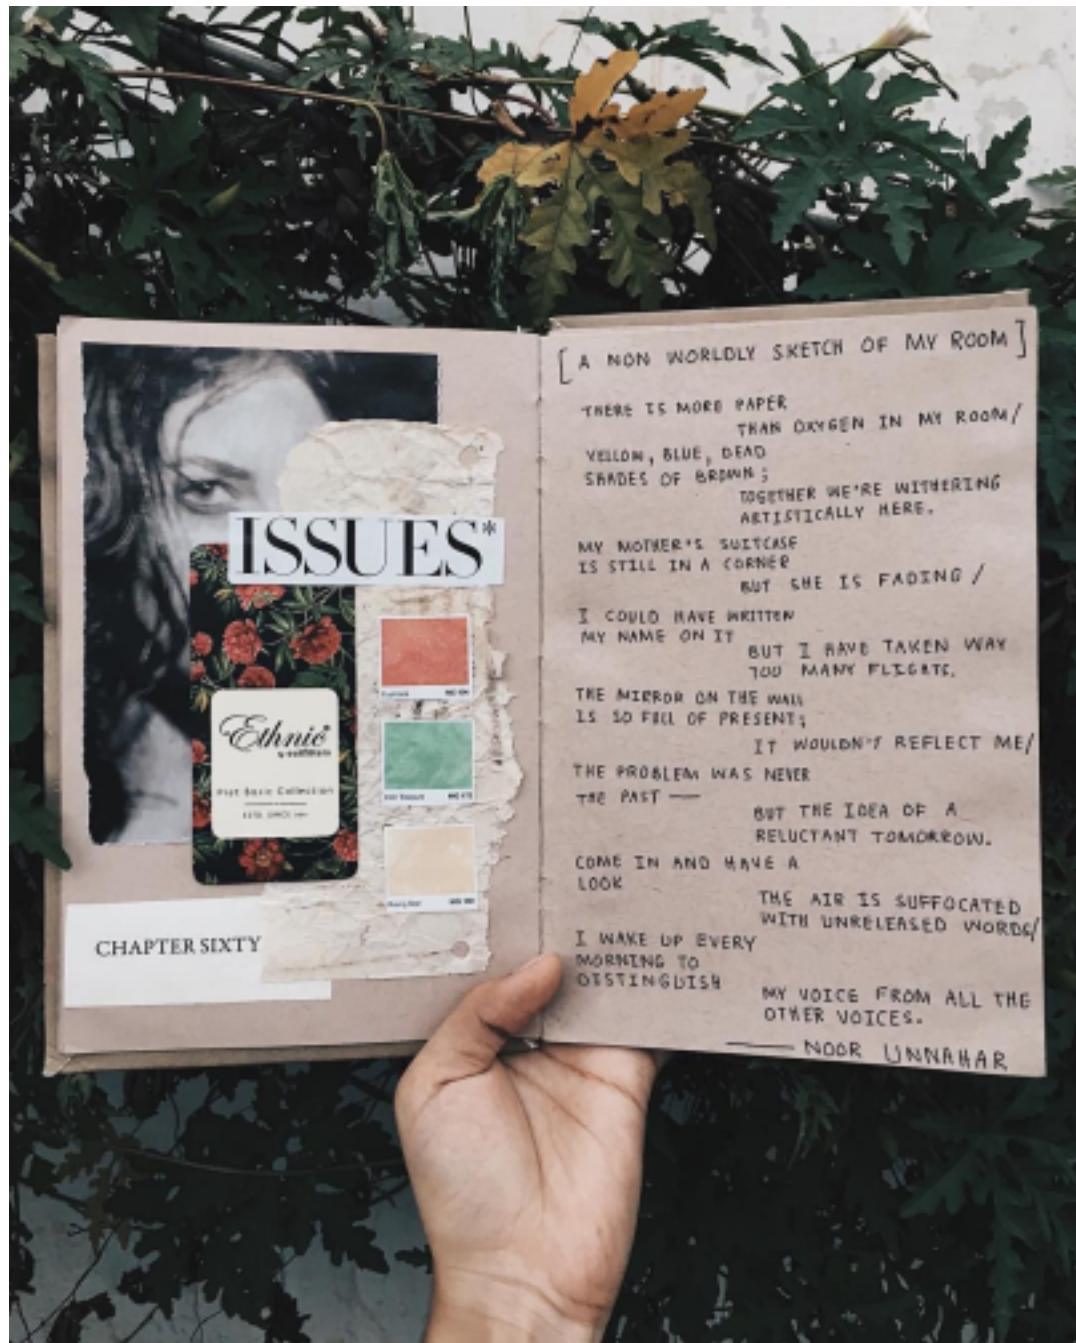 ISSUES*
Ethnic
CHAPTER SIXTY
[A NON WORLDLY SKETCH OF MY ROOM]
THERE IS MORE PAPER
THAN OXYGEN IN MY ROOM/
YELLOW, BLUE, DEAD
SHADES OF BROWN;
TOGETHER WE'RE WITHERING
ARTISTICALLY HERE.
MY MOTHER'S SUITCASE
IS STILL IN A CORNER
BUT SHE IS FADING/
I COULD HAVE WRITTEN
MY NAME ON IT
BUT I HAVE TAKEN WAY
TOO MANY FLIGHTS.
THE MIRROR ON THE WALL
IS SO FULL OF PRESENT;
IT WOULDN'T REFLECT ME/
THE PROBLEM WAS NEVER
THE PAST —
BUT THE IDEA OF A
RELUCTANT TOMORROW.
COME IN AND HAVE A
LOOK
THE AIR IS SUFFOCATED
WITH UNRELEASED WORDS/
I WAKE UP EVERY
MORNING TO
DISTINGUISH
MY VOICE FROM ALL THE
OTHER VOICES.
— NOOR UNNAHAR